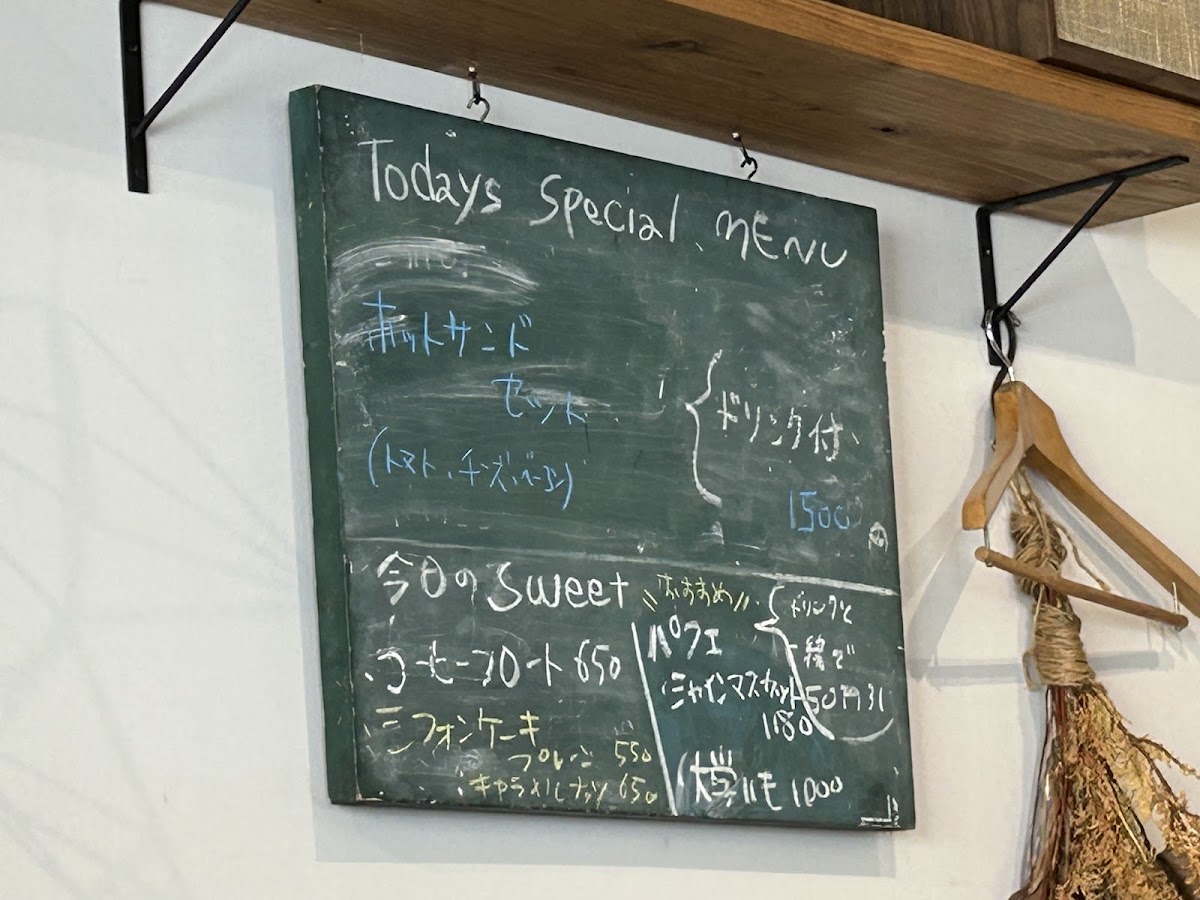 Todays Special MENU
ホットサンド
セット
(トマト、チーズ、ベーコン)
ドリンク付
1500
今日の Sweet
コーヒーフロート 650
シフォンケーキ
プレーン 550
キャラメルナッツ 650
\\おすすめ//
パフェ
シャインマスカット
1180
もも 1000
ドリンクと
一緒で
50円引